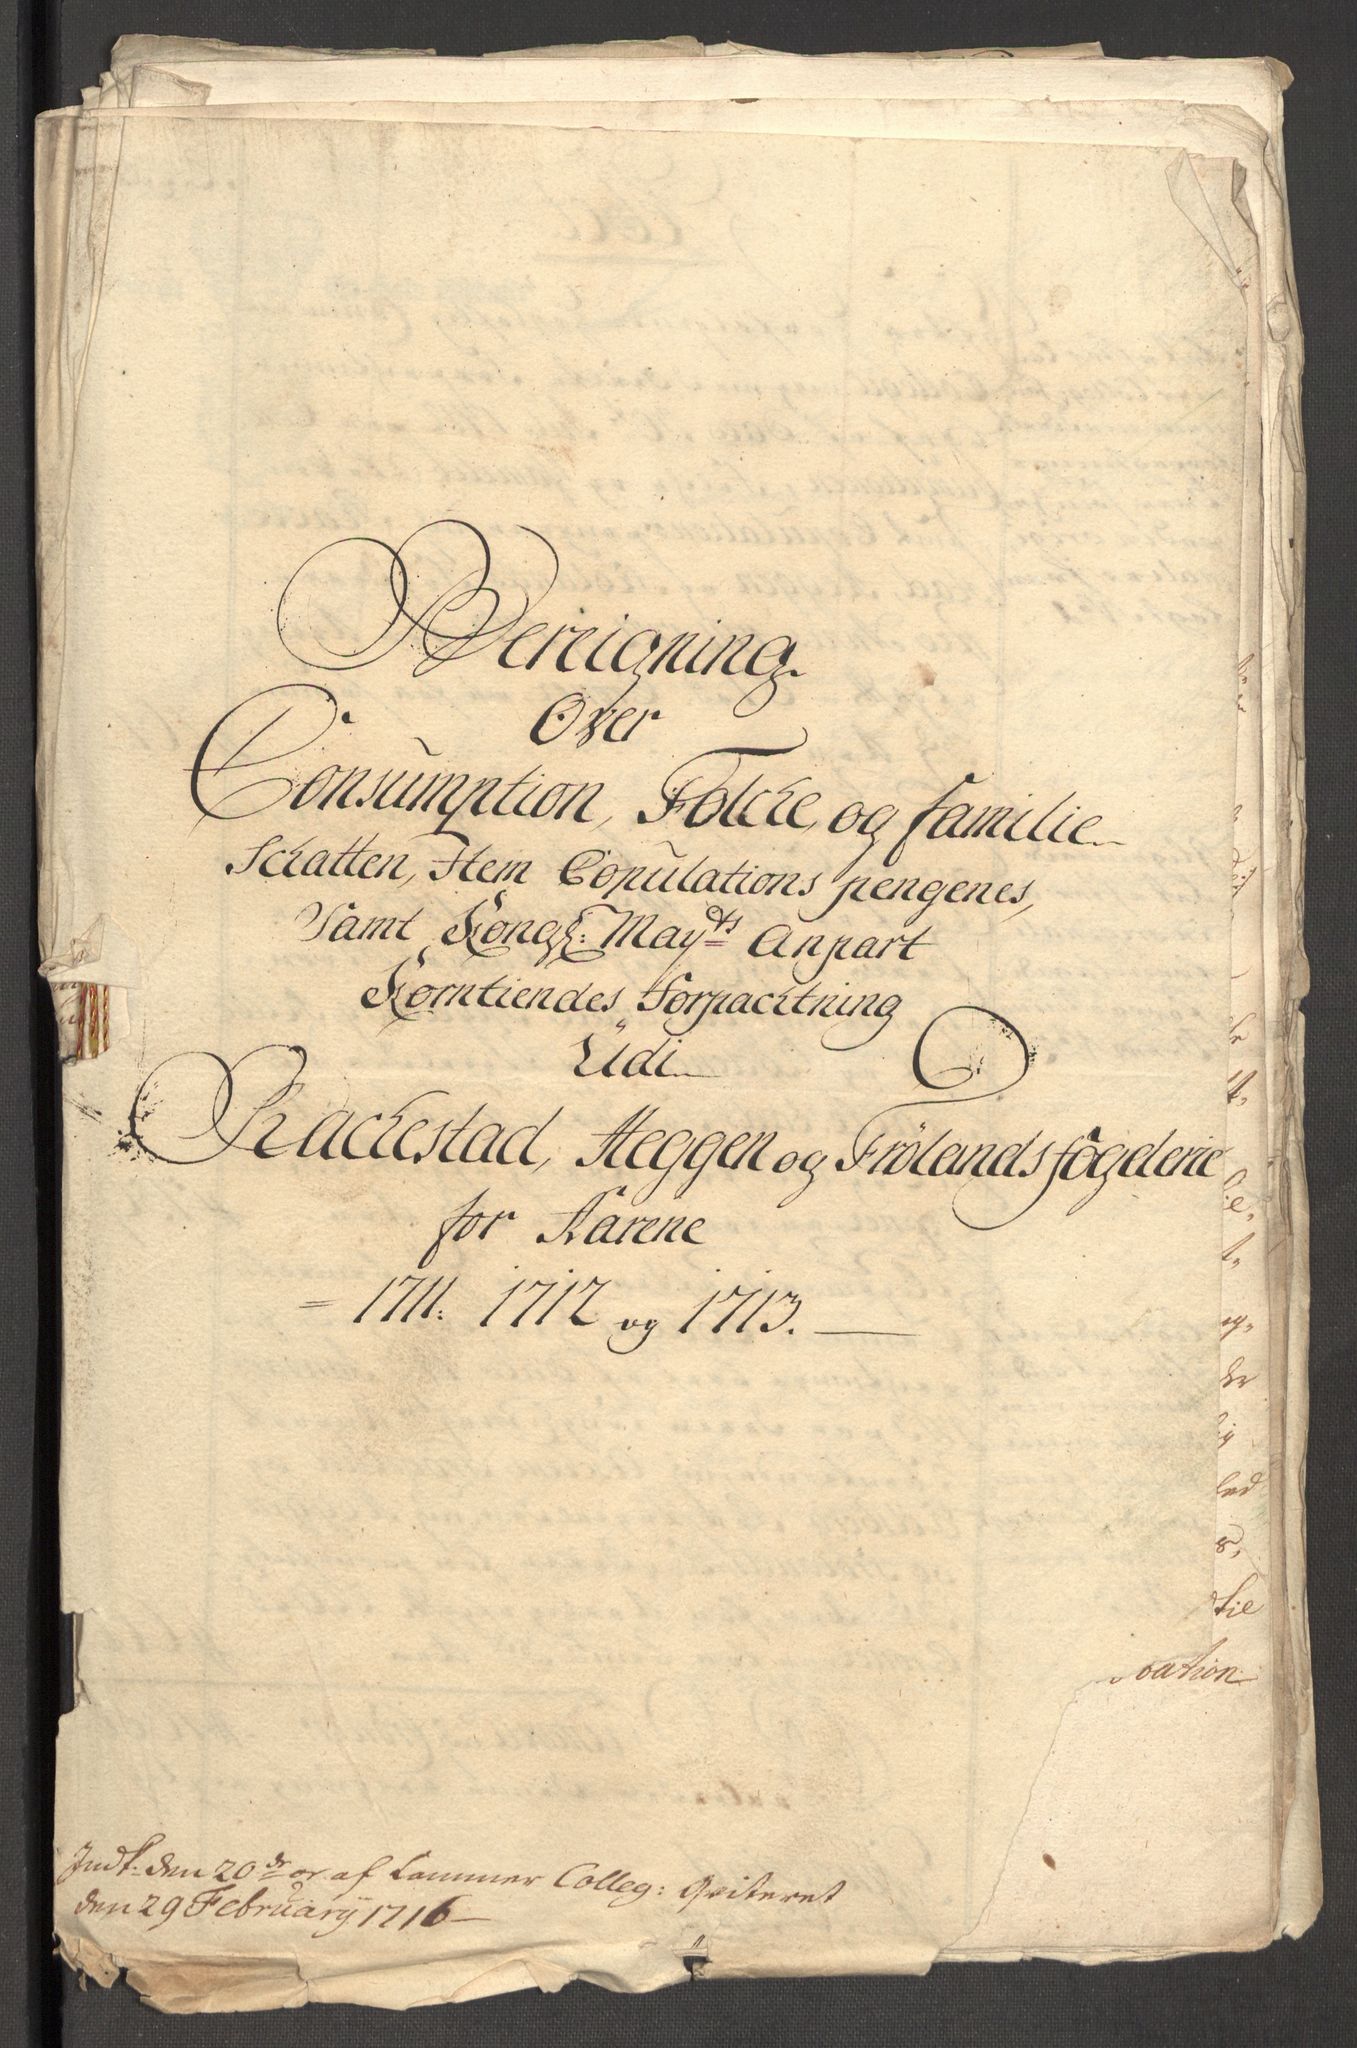 Bereigning
Over
Consumption, Folcke, og familie
Schatten, Item Copulations pengenes,
Samt Kongl: Mayts Anpart
Korntiendes forpachtning
Udi
Rackestad, Heggen og Frölands fögderie
for Aarene
= 1711. 1712 og 1713.
den 20de af Cammer Colleg: Qviteret
den 29 February 1716
de
t,
og,
der
lig
led
s,
tie
vation